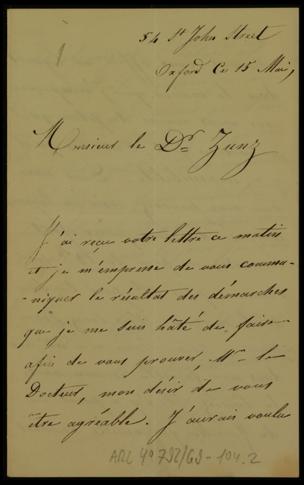 54 St John Street
Oxford Ce 15 Mai,
Monsieur le Dr Zunz
J'ai reçu votre lettre ce matin
et je m'empresse de vous commu-
-niquer le résultat des démarches
que je me suis hâté de faire
afin de vous prouver, Mr le
Docteur, mon désir de vous
être agréable. J'aurais voulu
ARC 4° 792/G9-104.2